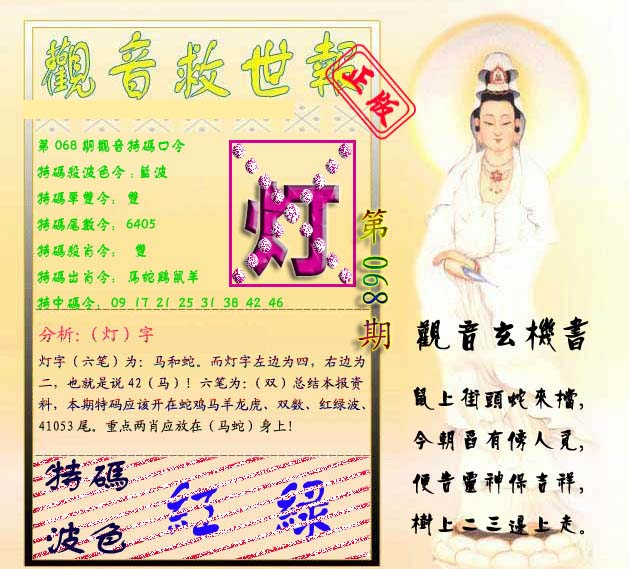 觀音救世報
正版
第068期觀音特碼口令
特碼殺波色令:藍波
特碼單雙令: 雙
特碼尾數令: 6405
特碼殺肖令: 雙
特碼出肖令: 馬蛇鷄鼠羊
特中碼令: 09 17 21 25 31 38 42 46
灯
第068期
分析:（灯）字
灯字（六笔）为：马和蛇。而灯字左边为四，右边为
二，也就是说42（马）！六笔为：（双）总结本报资
料，本期特码应该开在蛇鸡马羊龙虎、双数、红绿波、
41053尾。重点两肖应放在（马蛇）身上！
特碼
波色
紅 綠
觀音玄機書
鼠上街頭蛇來擋，
今朝酉有倐人見，
便告靈神保吉祥，
樹上二三邊上走。